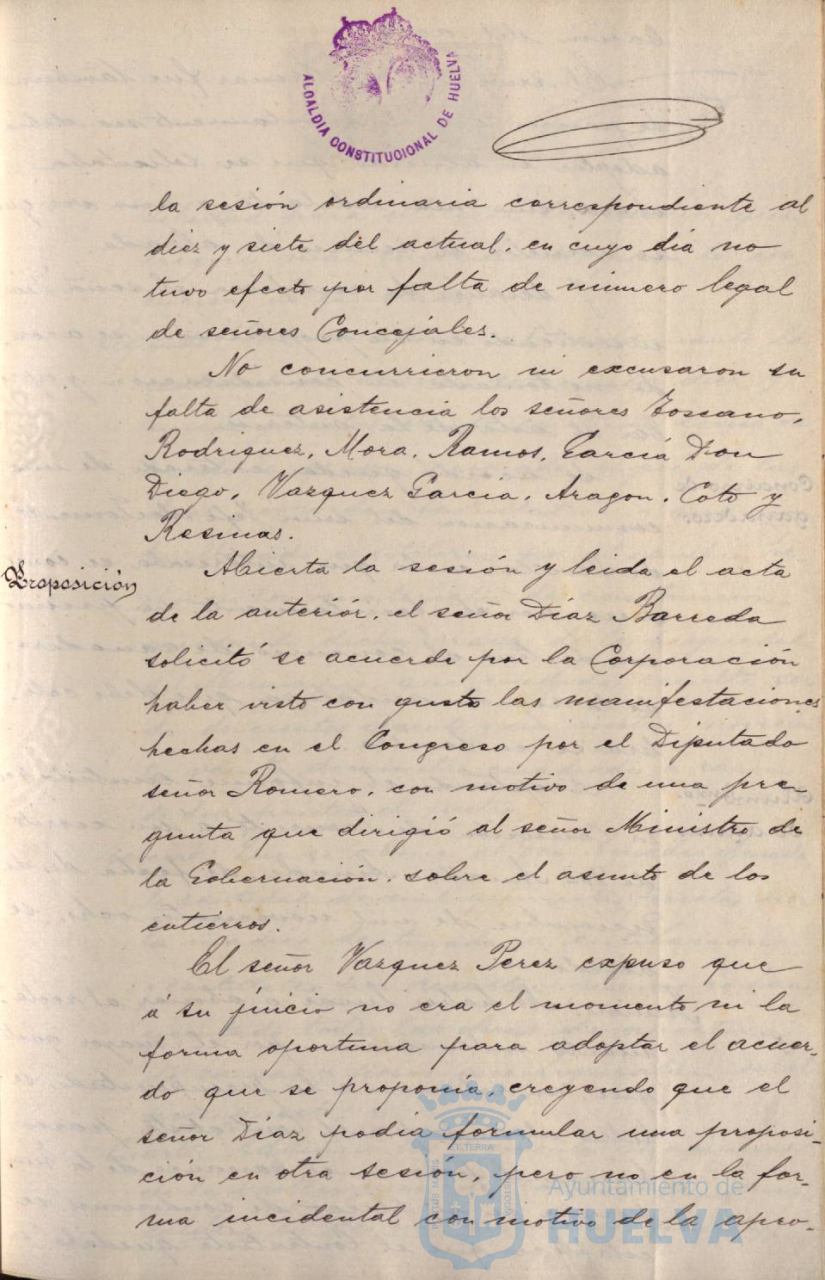 ALCALDIA CONSTITUCIONAL DE HUELVA
la sesión ordinaria correspondiente al
diez y siete del actual, en cuyo dia no
tuvo efecto por falta de número legal
de señores Concejales.
No concurrieron ni excusaron su
falta de asistencia los señores Toscano,
Rodriguez, Mora, Ramos, García Don
Diego, Vazquez Garcia, Aragon, Coto y
Resinas.
Proposición
Abierta la sesión y leida el acta
de la anteriór, el señor Díaz Barreda
solicitó se acuerde por la Corporación
haber visto con gusto las manifestaciones
hechas en el Congreso por el Diputado
señor Romero, con motivo de una pre-
gunta que dirigió al señor Ministro de
la Gobernación, sobre el asunto de los
entierros.
El señor Vazquez Perez expuso que
á su juicio no era el momento ni la
forma oportuna para adoptar el acuer-
do que se proponía, creyendo que el
señor Díaz podia formular una proposi-
ción en otra sesión, pero no en la for-
ma incidental con motivo de la apro-
Ayuntamiento de
HUELVA